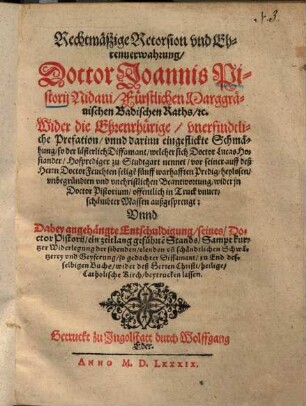 N. 3.
Rechtmäßige Retorsion vnd Eh-
renverwahrung/
Doctor Joannis Pi-
storij Nidani/ Fürstlichen Marggrä-
uischen Badischen Raths/ꝛc.
Wider die Ehrenrhürige/ vnerfindtli-
che Prefation/ vnnd darinn eingeflickte Schmä-
hung/ so der lästerlich Diffamant/ welcher sich Doctor Lucas Ho-
siander/ Hofprediger zu Studtgart nennet/ vor seiner auff deß
Herrn Doctor Jacuchten seligs fünff warhafften Predig/ herlosen/
vnbegründten vnd vnchristlichen Beantwortung/ wider jn
Doctor Pistorium/ offentlich in Truck vnuer-
schämbter Massen außgesprengt:
Vnnd
Dabey angehängte Entschuldigung/ seines/ Do-
ctor Pistorij/ ein zeit lang gefühtē Stands/ Sampt kur-
tzer Widerlegung der
zu End deß-
selbigen Buchs/ wider deß Herren Christi/ heilige/
Catholische Kirch/ vertrucken lassen.
Getruckt zu Ingolstatt durch Wolffgang
Eder.
ANNO M. D. LXXXIX.